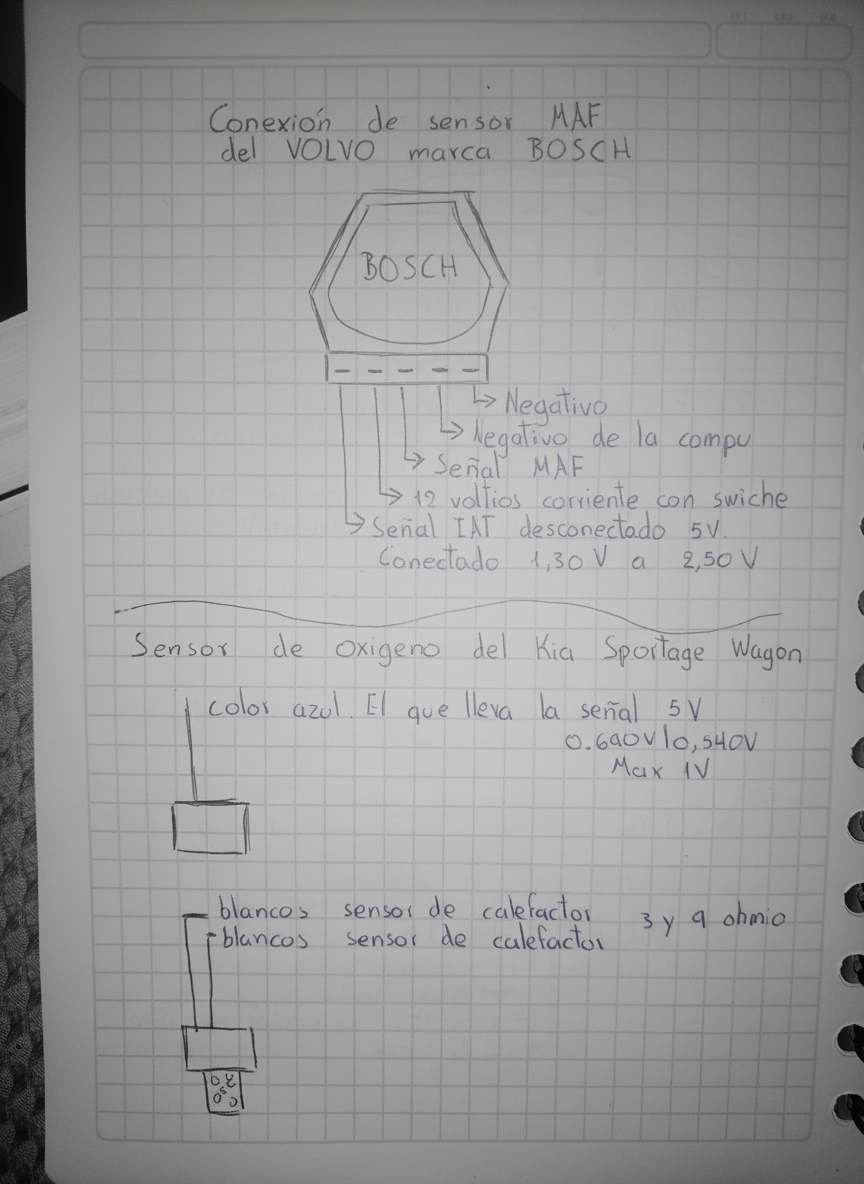 Conexión de sensor MAF
del VOLVO marca BOSCH
BOSCH
Negativo
Negativo de la compu
Señal MAF
12 voltios corriente con swiche
Señal IAT desconectado 5V.
Conectado 1,30 V a 2,50 V
Sensor de oxigeno del Kia Sportage Wagon
color azul. El que lleva la señal 5V
0.690V|0,540V
Max 1V
blancos sensor de calefactor 3 y 9 ohmio
blancos sensor de calefactor